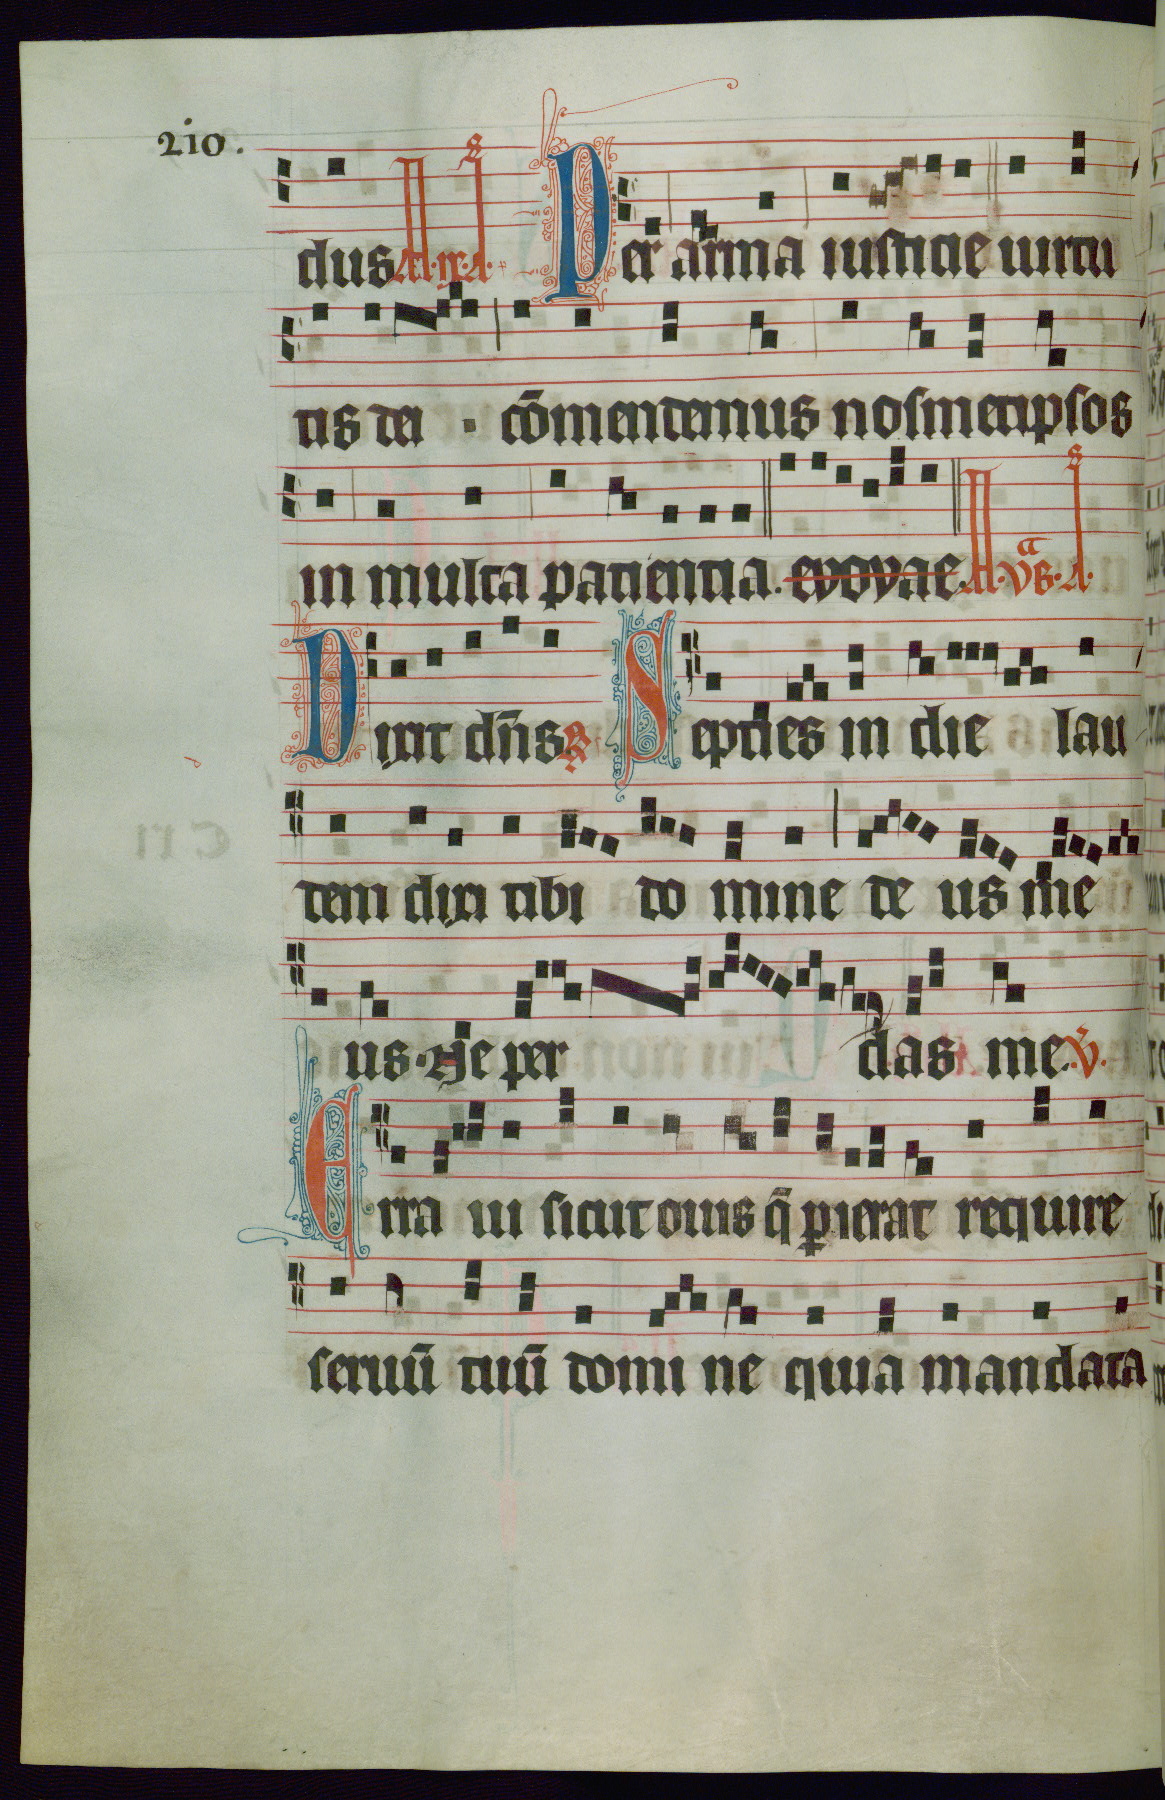 210.
dus Ad ix a Per arma iusticie uirtu
tis dei · cōmendemus nosmetipsos
in multa patientia. evovae Ad vs a
Dixit dn̄s R Septies in die lau
dem dixi tibi do mine de us me
us · Ne per das me. v.
Erra ui sicut ouis q̄ ꝑierat require
seruū tuū domi ne quia mandata